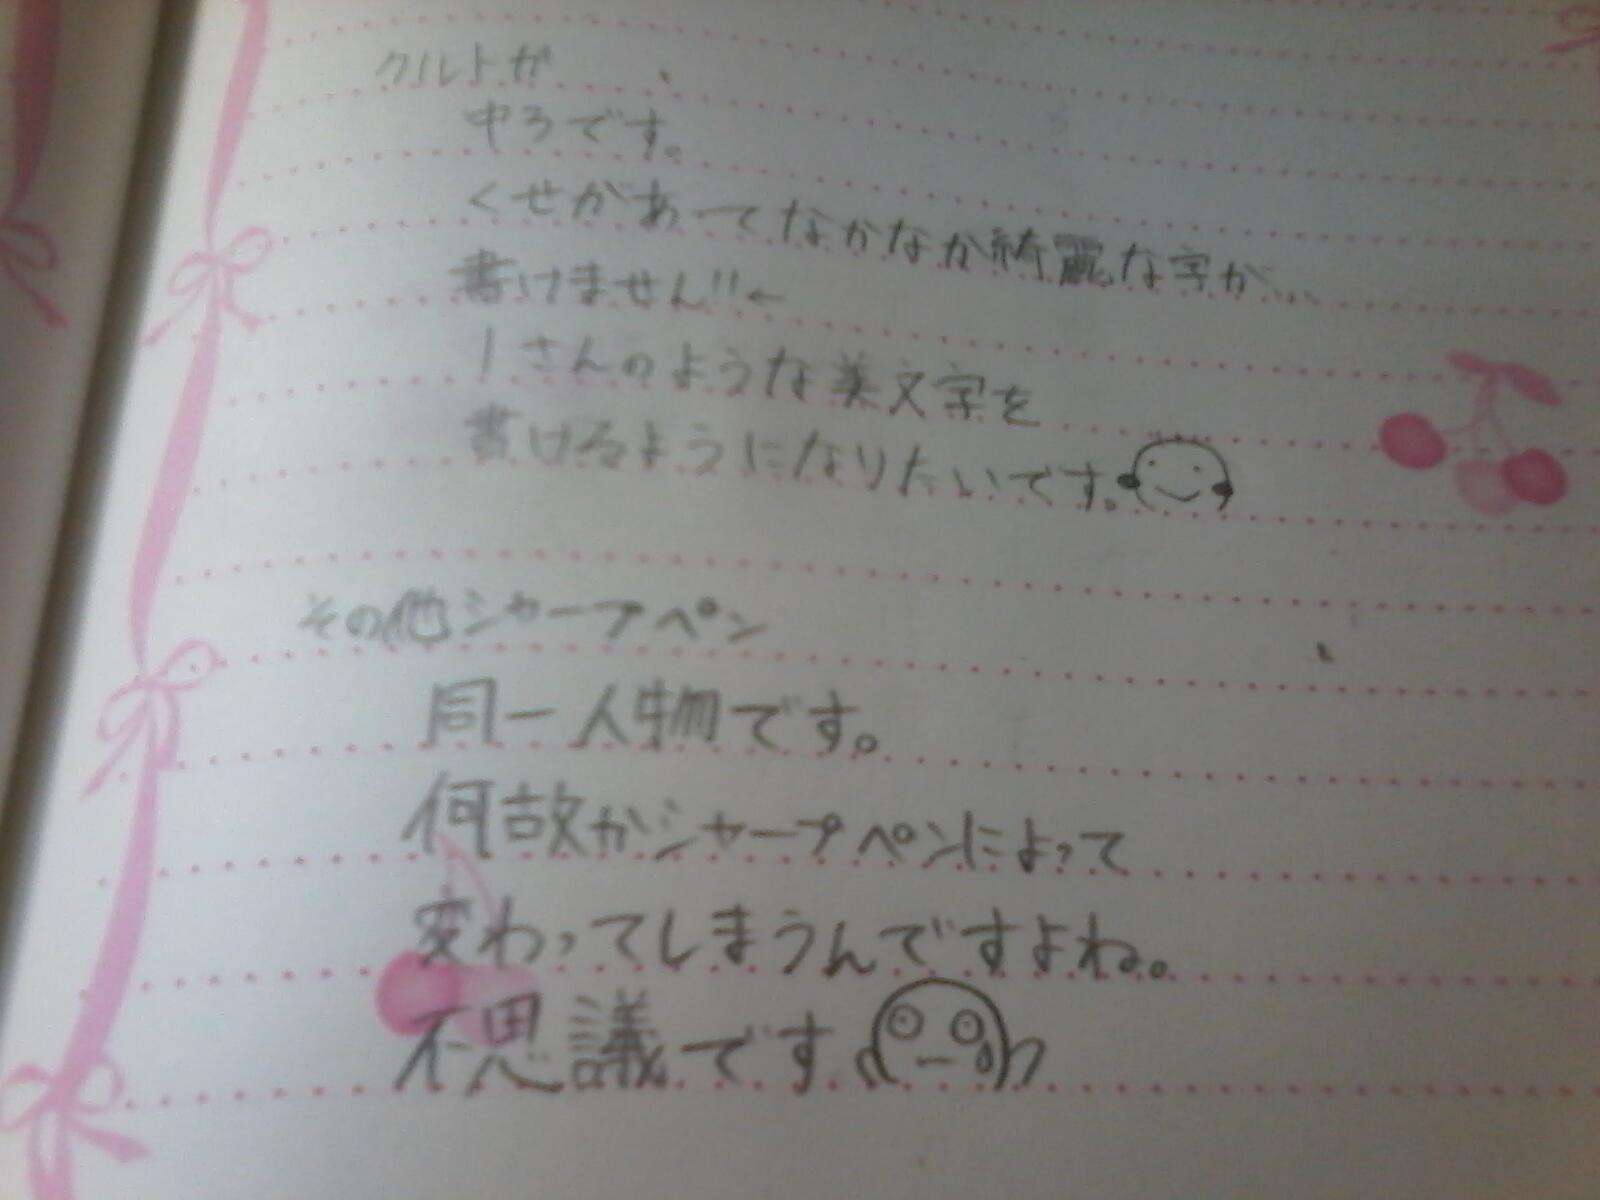 クルトガ
中3です。
くせがあってなかなか綺麗な字が...
書けません!!←
1さんのような美文字を
書けるようになりたいです。
その他シャープペン
同一人物です。
何故かシャープペンによって
変わってしまうんですよね。
不思議です